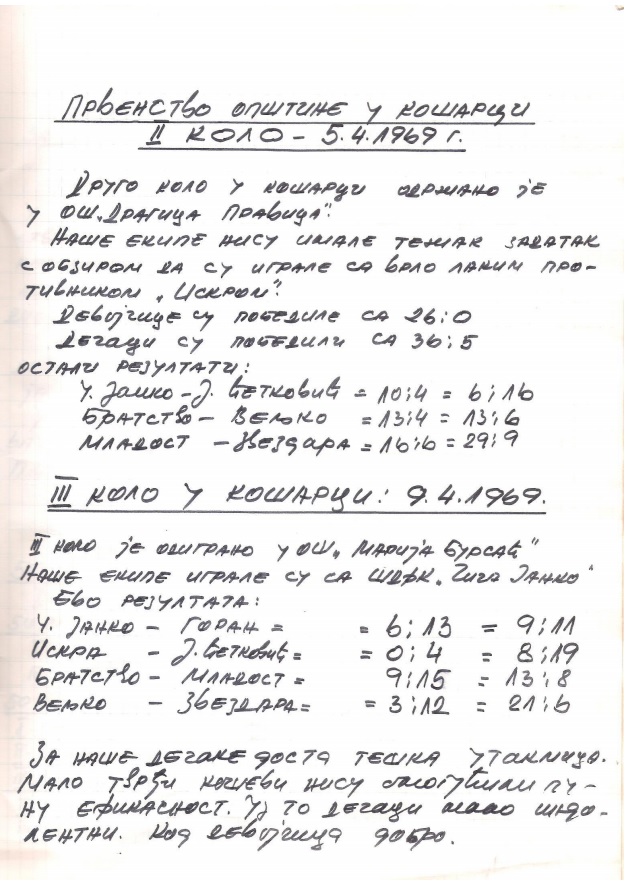 Првенство општине у кошарци
II коло – 5.4.1969 г.
Друго коло у кошарци одржано је
у ОШ „Драгица Правица".
Наше екипе нису имале тежак задатак
с обзиром да су играле са врло лаким про-
тивником „Искром".
Девојчице су победиле са 26:0
Дечаци су победили са 36:5
Остали резултати:
Ч. Јанко – Ј. Цветковић = 10:4 = 6:16
Братство – Вељко = 13:4 = 13:6
Младост – Звездара = 16:6 = 29:9
III коло у кошарци: 9.4.1969.
III коло је одиграно у ОШ „Марија Бурсаћ"
Наше екипе играле су са ШДФК „Чича Јанко"
Ево резултата:
Ч. Јанко – Горан = = 6:13 = 9:11
Искра – Ј. Цветковић = = 0:4 = 8:19
Братство – Младост = 9:15 = 13:8
Вељко – Звездара = = 3:12 = 21:6
За наше дечаке доста тешка утакмица.
Мало тврђи кошеви нису омогућили пу-
ну ефикасност. Уз то дечаци мало индо-
лентни. Код девојчица добро.